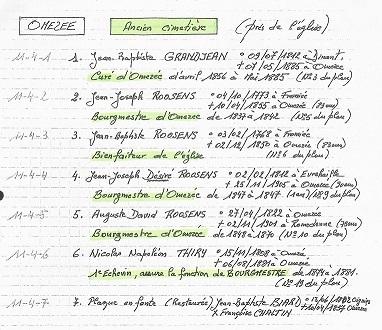 OMEZEE Ancien cimetière (près de l'église)
11-4-1 1. Jean-Baptiste GRANDJEAN ° 09/07/1812 à Dinant,
+ 01/05/1885 à Omezée
Curé d'Omezée d'avril 1856 à Mai 1885 (N°3 du plan)
11-4-2 2. Jean-Joseph ROOSENS ° 04/10/1773 à Franiée
+ 10/04/1855 à Omezée
Bourgmestre d'Omezée de 1837 à 1842 (N°5 du plan)
11-4-3 3. Jean-Baptiste ROOSENS ° 03/02/1768 à Franiée
+ 02/12/1850 à Omezée
Bienfaiteur de l'église (N°6 du plan)
11-4-4 4. Jean-Joseph Désiré ROOSENS ° 02/02/1812 à
+ 25/11/1905 à Omezée
Bourgmestre d'Omezée de 1847 à 1847 (N°9 du plan)
11-4-5 5. Auguste David ROOSENS ° 27/09/1822 à Omezée
+ 02/11/1901 à Romedenne
Bourgmestre d'Omezée de 1848 à 1870 (N°10 du plan)
11-4-6 6. Nicolas Napoléon THIRY ° 15/11/1808 à Omezée
+ 06/08/1881 à Omezée
1er Echevin, assure la fonction de BOURGMESTRE de 1874 à 1881.
(N° 13 du plan)
11-4-7 7. Plaque en fonte (Restaurée) Jean-Baptiste
x Françoise CHALTIN